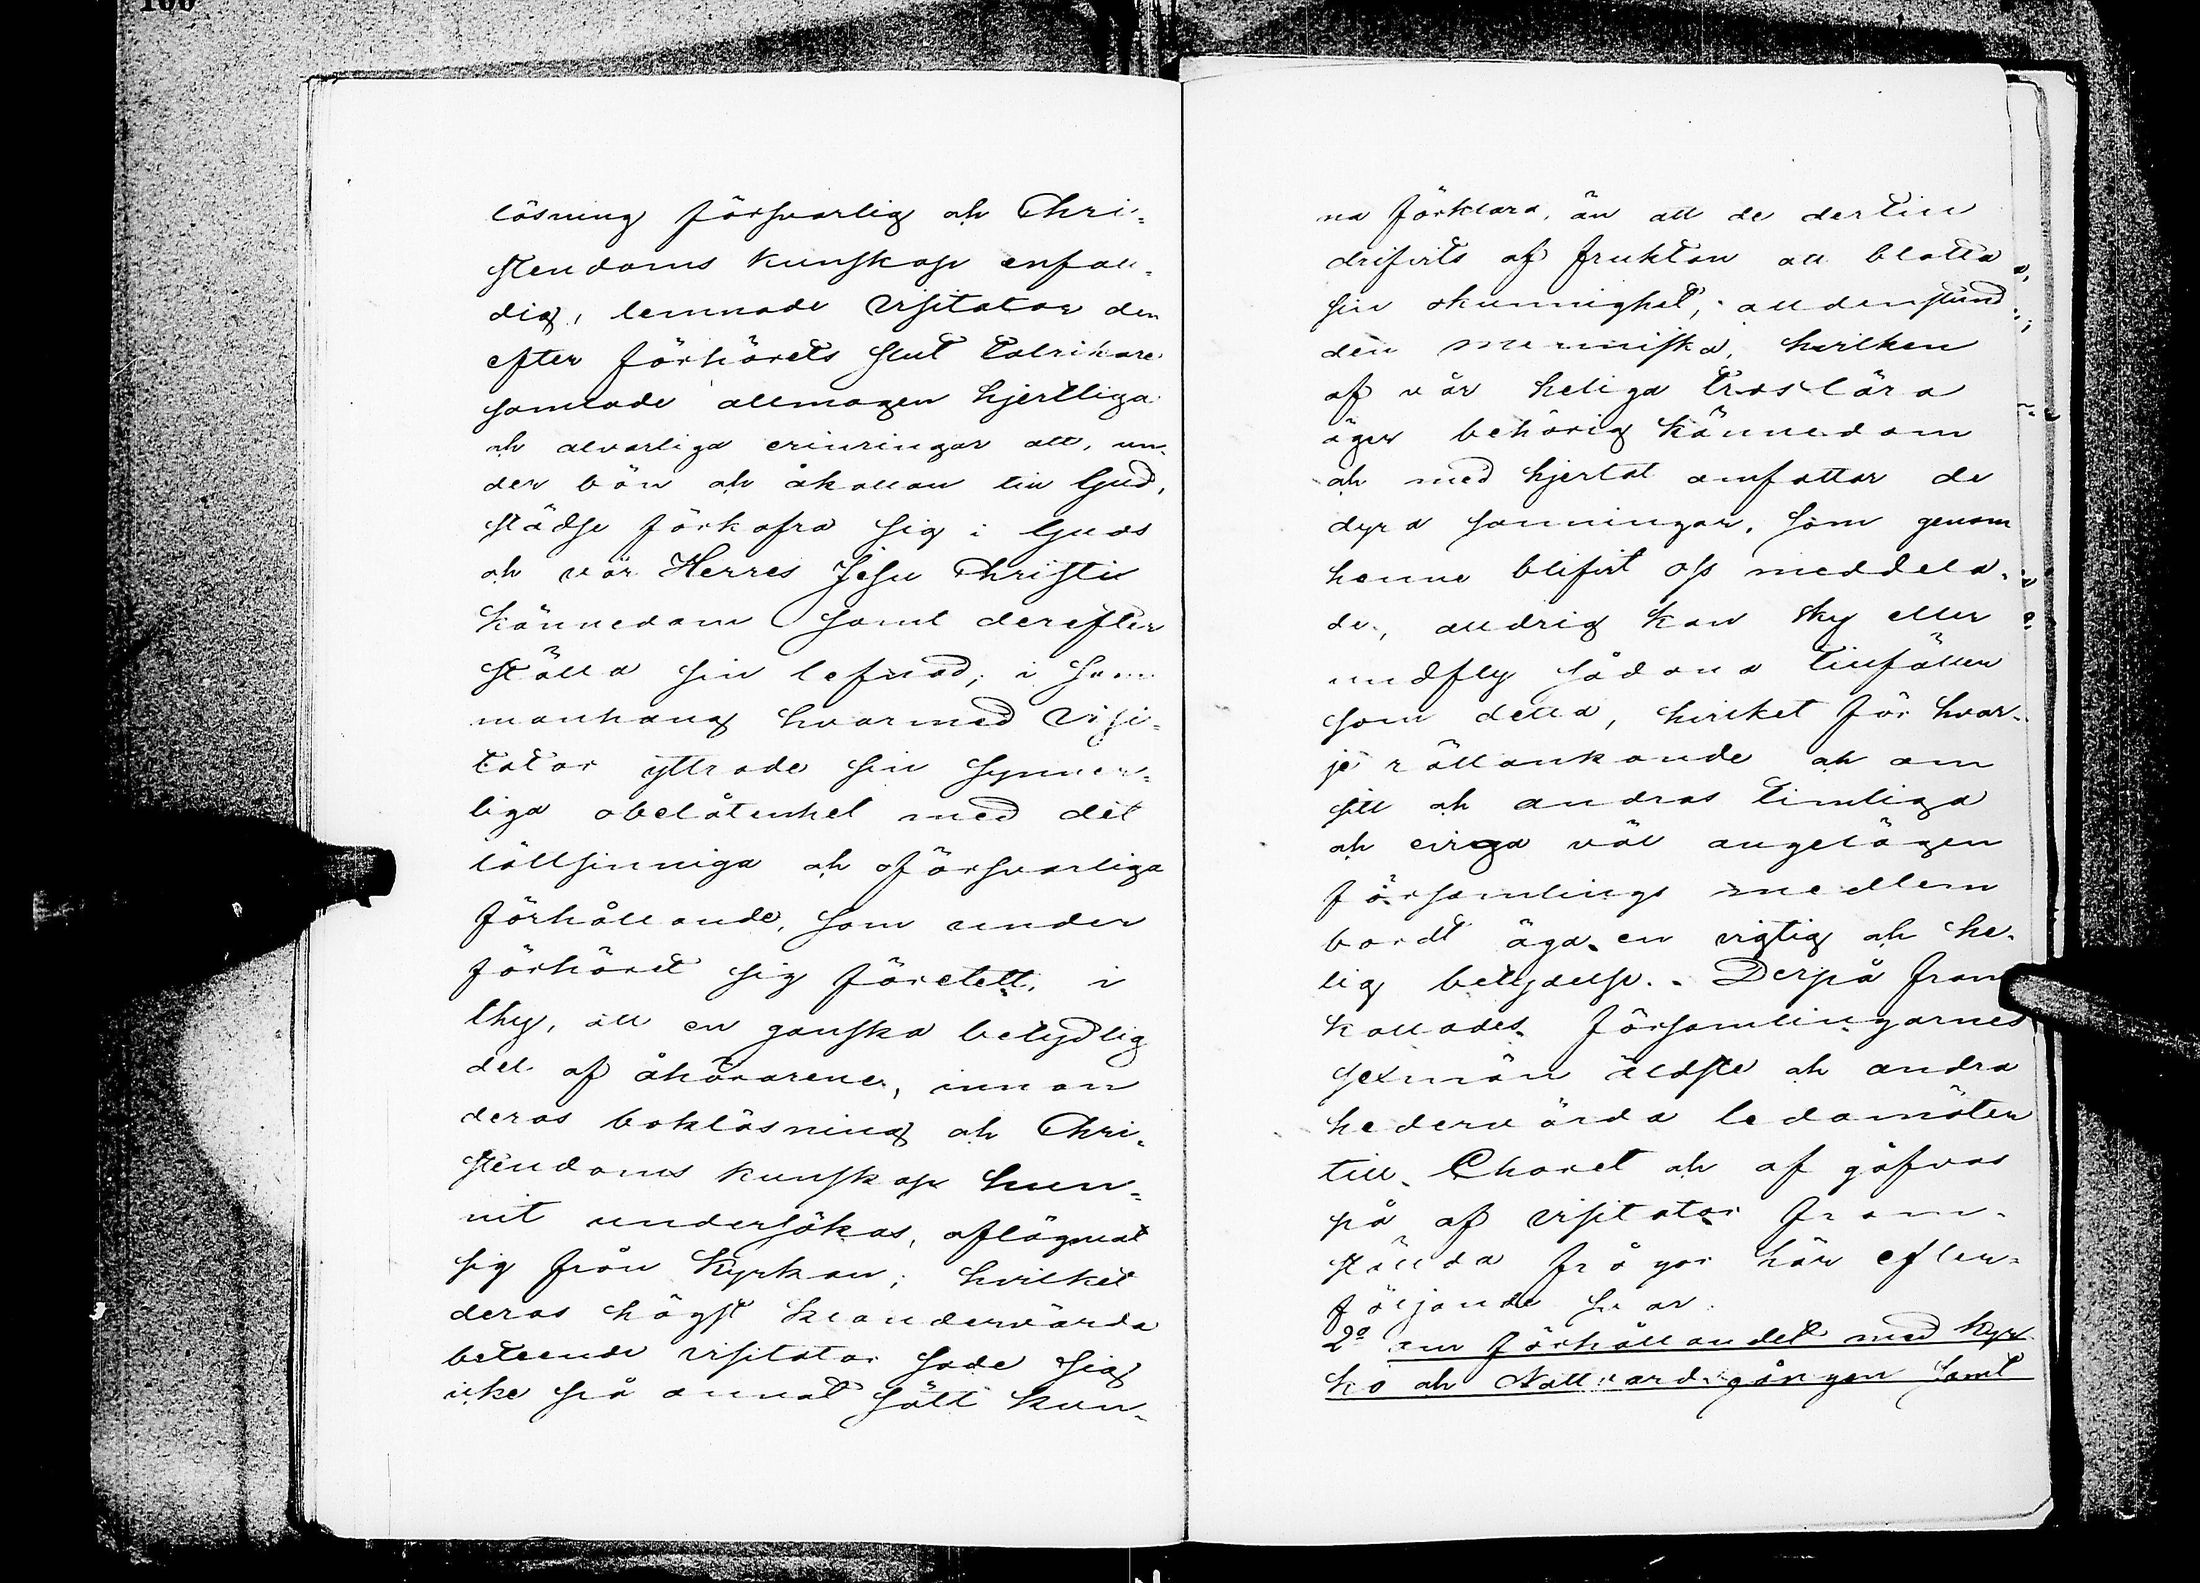 100
läsning försvarlig och Chri-
stendoms kunskap enfall-
dig, lemnade Visitator den
efter förhörets slut talrikare
samlade allmogen hjertliga
och alvarliga erinringar att, un-
der bön och åkallan till Gud,
städse förkofra sig i Guds
och vår Herres Jesu Christi
kännedom samt derefter
ställa sin lefnad; i sam
manhang hvarmed Visi-
tator yttrade sin synner-
liga obelåtenhet med det
lättsinniga och oförsvarliga
förhållande, som under
förhöret sig företett, i
thy, att en ganska betydlig
del af åhörarene, innan
deras bokläsning och Chri-
stendoms kunskap hun-
nit undersökas, aflägsnat
sig från Kyrkan; hvilket
deras högst klandervärda
beteende Visitator sade sig
icke på annat sätt kun-
na förklara, än att de dertill
drifvits af fruktan att blotta
sin okunnighet; alldenstund
den menniska, hvilken
af vår heliga troslära
äger behörig kännedom
och med hjertat omfattar de
dyra sanningar, som genom
henne blifvit oss meddela-
de, alldrig kan sky eller
undfly sådana tillfällen
som detta, hvilket för hvar-
je rättänkande och om
sitt och andras timliga
och eviga väl angelägen
församlings medlem
bordt äga en vigtig och he-
lig betydelse. - Derpå fram
kallades församlingarnes
sexmän äldste och andra
hedervärda ledamöter
till Choret och af gåfvos
på af Visitator fram-
stälda frågor här efter-
följande svar.
2o om förhållandet med Kyr
ko och Nattvardsgången samt